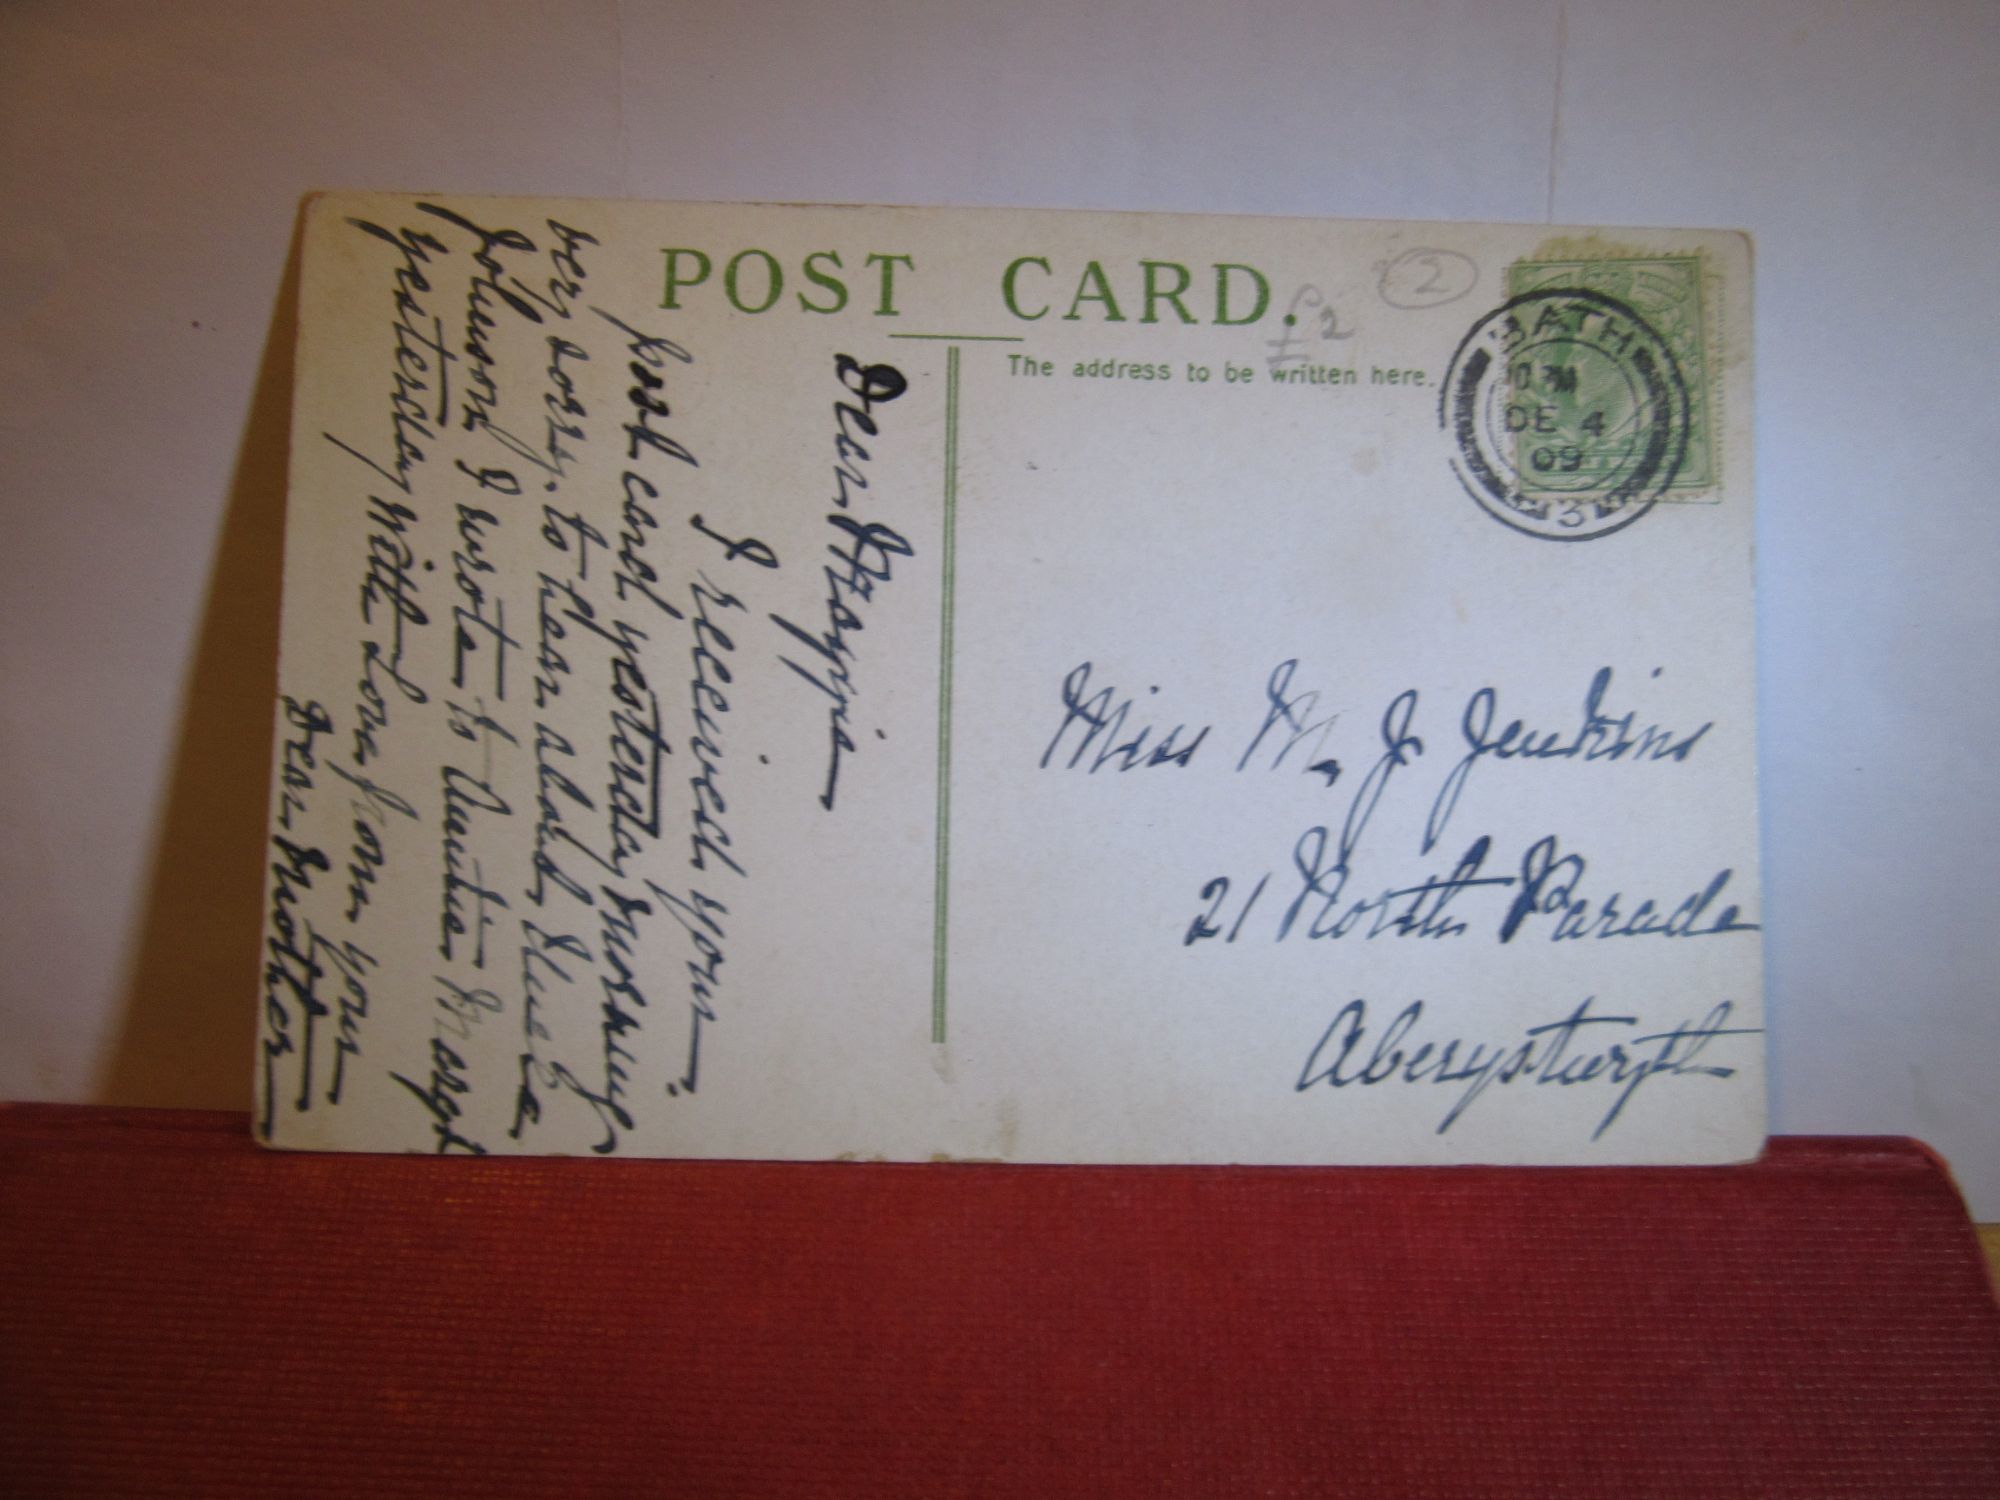 POST CARD.
The address to be written here.
£2
2
BATH
10 PM
DE 4
09
3
Miss M. J Jenkins
21 North Parade
Aberystwyth
Dear Maggie
I received your
post card yesterday morning
very sorry. to hear about
Johnson I wrote to Auntie Margt
yesterday with Love from your
Dear Mother